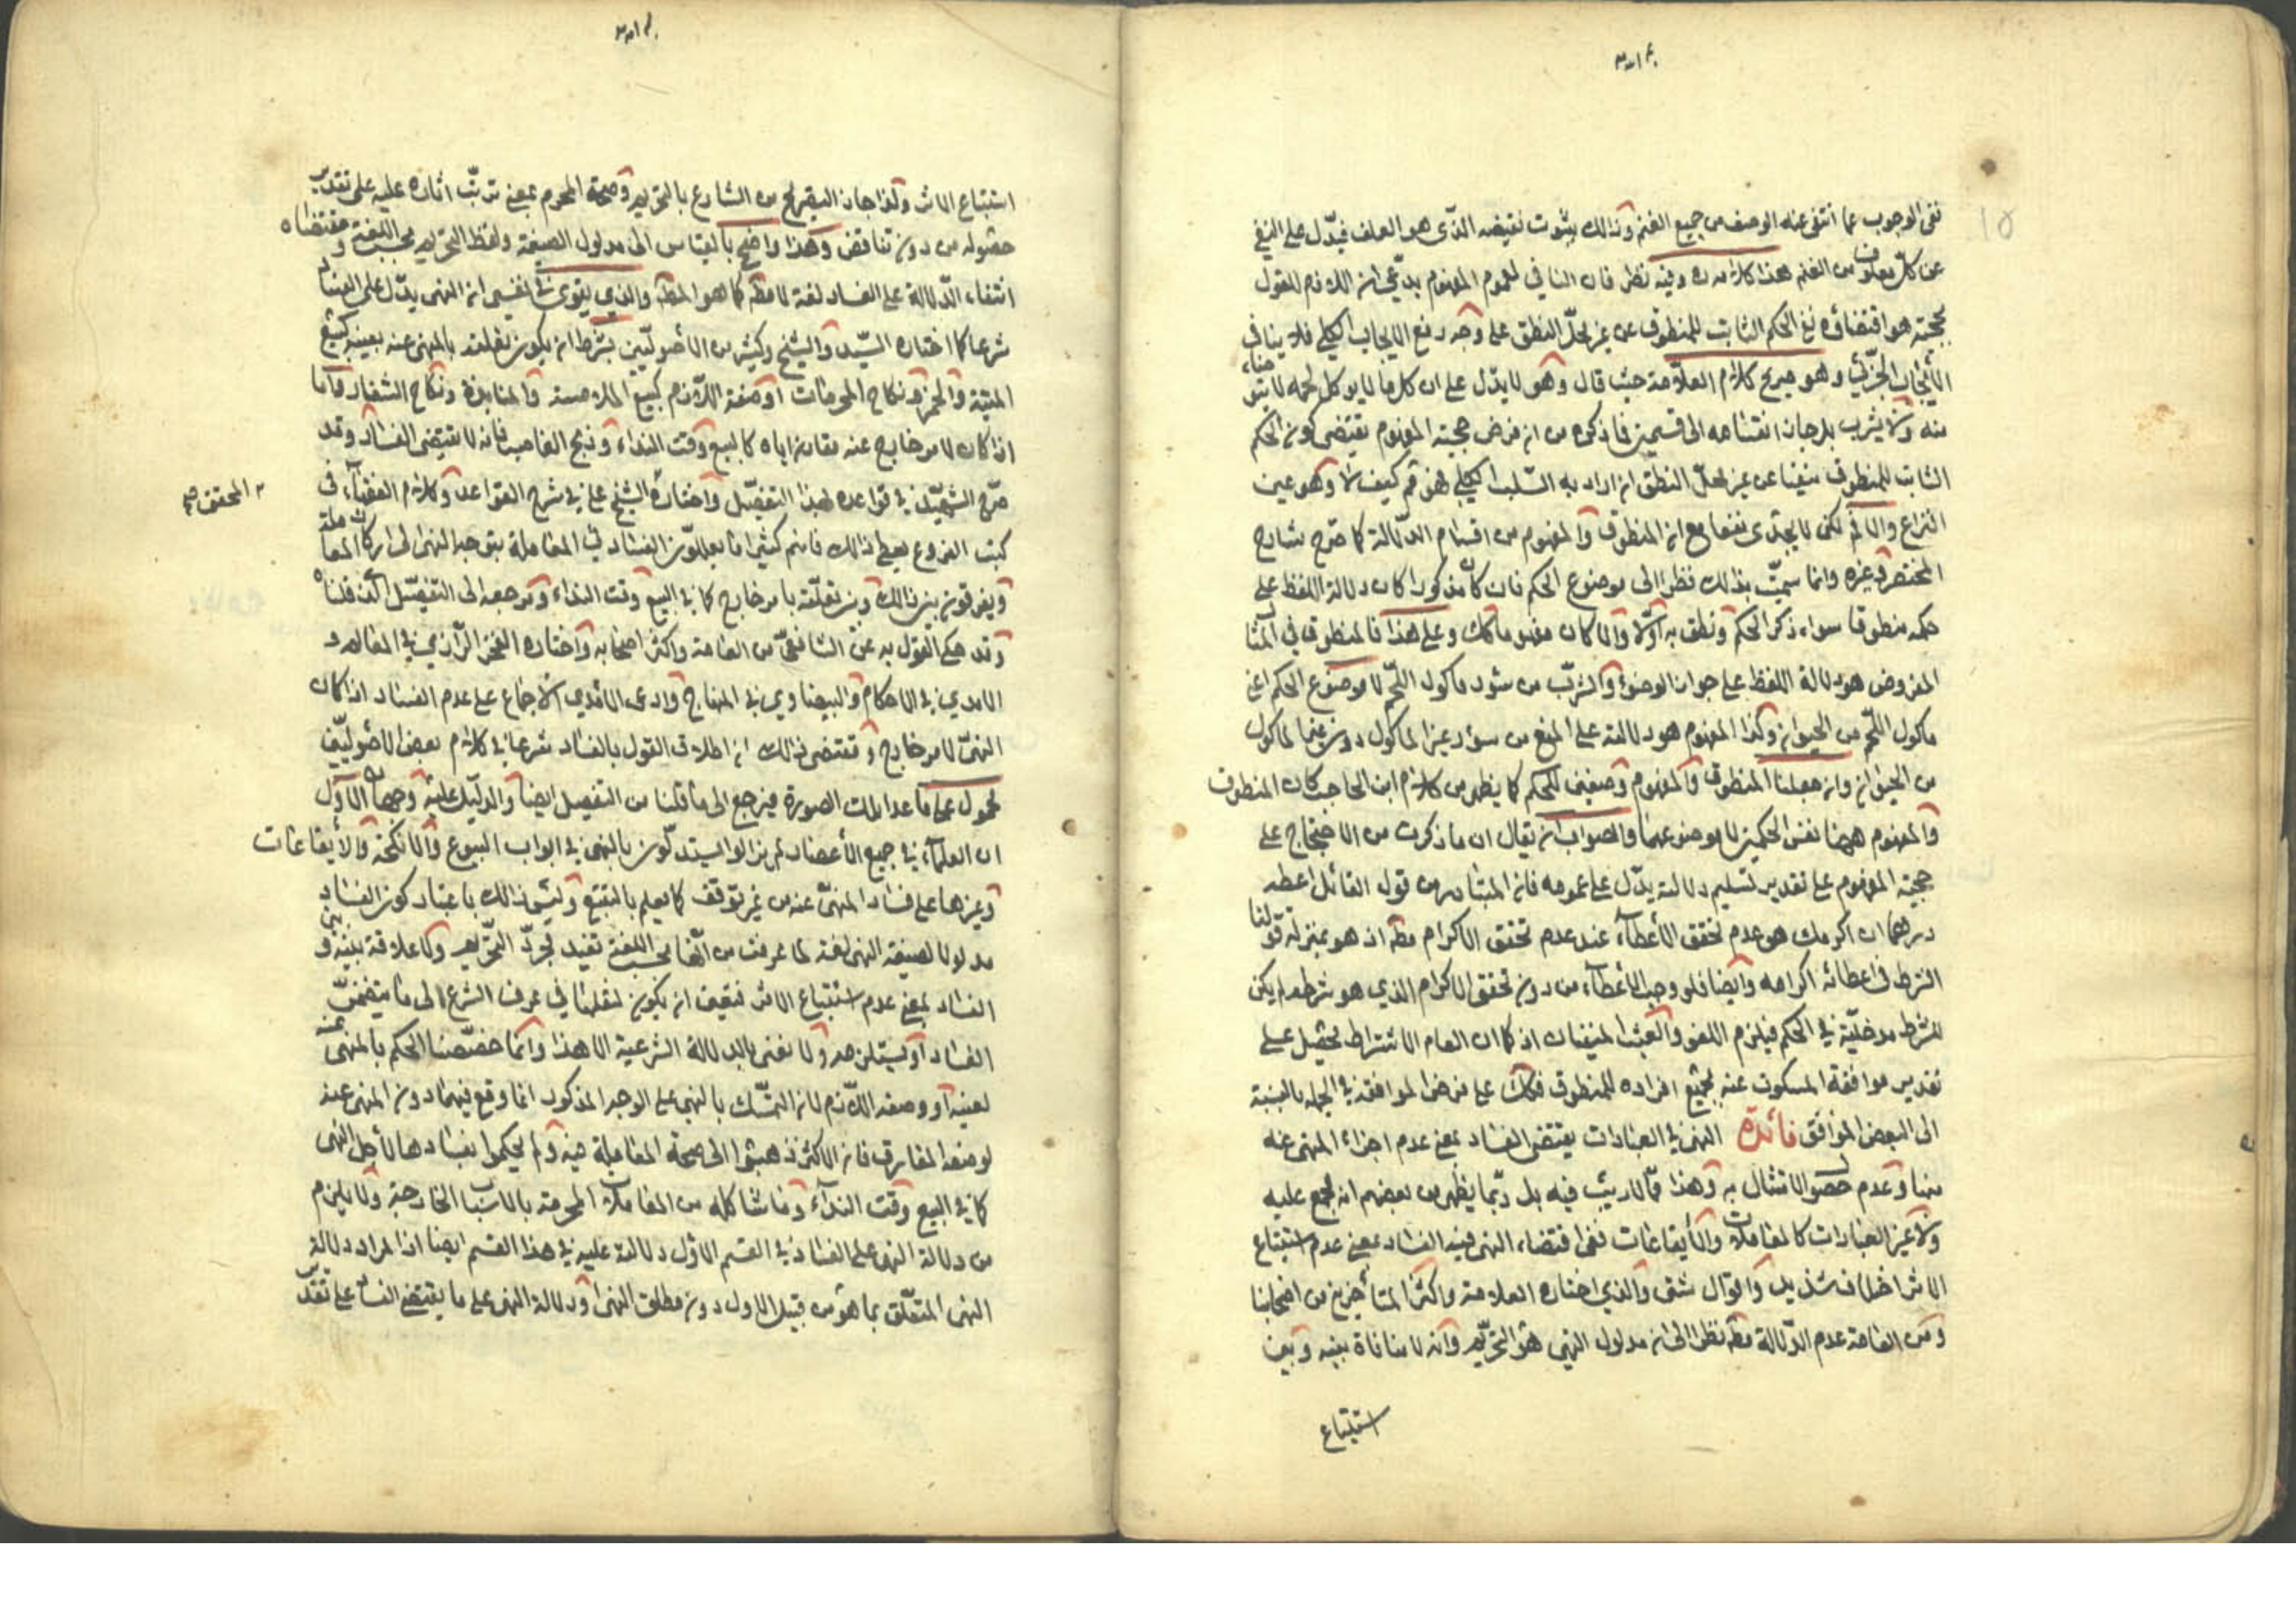 نفى الوجوب عما انتفى عنه الوصف من جميع الغنم وذلك بثبوت نقيضه الذى هو العلف فيدّل على النفى
عن كلّ معلوف من الغنم هذا كلامه ره وفيه نظر فان النافى لعموم المفهوم يدّعى ان اللازم للقول
بحجيته هو اقتضائه نفى الحكم الثابت للمنطوق عن غير محلّ النطق على وجه رفع الايجاب الكلى فلا ينافى
الأيجاب الجزئي وهو صريح كلام العلّامة حيث قال وهو لا يدّل على ان كل ما لا يوكل لحمه لا يتوضاء
منه ولا يشرب بل جاز انقسامه الى قسمين فما ذكره من ان فرض حجية المفهوم يقتضى كون الحكم
الثابت للمنطوق منفيا عن غير محلّ النطق ان اراد به السّلب الكلى فهو مم كيف لا وهو عين
النزاع والا فمّ لكن لا يجدى نفعا مع ان المنطوق والمفهوم من اقسام الدلّالة كما صرّح شارح
المختصر وغيره وانما سميّت بذلك نظرا الى موضوع الحكم فان كان مذكورا كان دلالة اللفظ على
حكمه منطوقا سواء ذكر الحكم ونطق به أوّلا والا كان مفهوما كك وعلى هذا فالمنطوق في المثال
المفروض هو دلالة اللفظ على جواز الوضوء والشرب من سئور ماكول اللّحم لا موضوع الحكم اعنى
ماكول اللّحم من الحيوان وكذا المفهوم هو دلالته على المنع من سؤر غير الماكول دون غير الماكول
من الحيوان وان جعلنا المنطوق والمفهوم وصفين للحكم كما يظهر من كلام ابن الحاجب كان المنطوق
والمفهوم ههنا نفس الحكمين لا موضوعهما والصواب ان يقال ان ما ذكرت من الاحتجاج على
حجية المفهوم على تقدير تسليم دلالته يدّل على عمومه فان المتبادر من قول القائل اعطه
درهما ان اكرمك هو عدم تحقق الأعطاء عند عدم تحقق الاكرام مطّه اذ هو بمنزلة قولنا
الشرط فى اعطائه اكرامه وايضا فلو وجب الأعطاء من دون تحقق الاكرام الذي هو شرطه لم يكن
للشرط مدخليّة في الحكم فيلزم اللغو والعبث المنفيان اذ كما ان العام الاشتراط يحصل على
تقدير موافقة المسكوت عنه بجميع افراده للمنطوق فكك على فرض الموافقة في الجمله بالنسبة
الى البعض الموافق فائدة النهى في العبادات يقتضى الفساد بمعنى عدم اجزاء المنهى عنه
بها وعدم حصول الامتثال به وهذا ممّا لا ريب فيه بل ربّما يظهر من بعضهم انه مجمع عليه
ولا غير العبادات كالمعاملات والأيقاعات ففى اقتضاء النهى فيه الفساد بمعنى عدم استتباع
الاثر اختلاف شديد واقوال شتى والذي اختاره العلامة واكثر المتأخرين من اصحابنا
ومن العامة عدم الدّلالة مطّه نظرا الى ان مدلول النهى هو التحريم وانه لا منافاة بينه وبين
استتباع
استتباع الاثر ولذا جاز التصريح من الشارع بالتحريم وصحة المحرم بمعنى ترتّب اثاره عليه على تقدير
حصوله من دون تناقض وهذا واضح بالقياس الى مدلول الصيغة ولفظ التحريم بحسب اللغة ومقتضاه
انتفاء الدّلالة على الفساد لغة لا مطّه كما هو المطّه والذي يقوى في نفسى ان النهى يدّل على الفساد
شرعا كما اختاره السيّد والشيخ وكثير من الأصوليّين بشرط ان يكون تعلقه بالمنهى عنه بعينه كبيع
الميتة والخمر ونكاح المحرمات او وصفه اللّازم كبيع الملامسة والمنابذة ونكاح الشغار واما
اذا كان لامر خارج عنه مقارن اياه كالبيع وقت النداء وذبح الغاصب فانه لا يقتضى الفساد وقد
صرّح الشهيد في قواعده بهذا التفصيل واختاره الشيخ على في شرح القواعد وكلام الفقهاء في
المحقق صح
كتب الفروع يعطى ذلك فانهم كثيرا ما يعللون الفساد في المعاملة بتوجه النهى الى اركان المعاملة
ويفرقون بين ذلك وبين تعلّقه بامر خارج كما في البيع وقت النداء ومرجعه الى التفصيل الذي قلناه
وقد حكى القول به عن الشافعى من العامة واكثر اصحابه واختاره الفخر الرّازي في المعالم و
الامدي في الاحكام والبيضاوي في المنهاج وادعى الامدي الاجماع على عدم الفساد اذا كان
النهىّ لامر خارج ومقتضى ذلك ان اطلاق القول بالفساد شرعا في كلام بعض الأصوليّين
محمول على ما عدا تلك الصورة فيرجع الى ما قلنا من التفصيل ايضا والدليل عليه وجهان الاوّل
ان العلماء في جميع الأعصار لم يزالوا يستدلّون بالنهى في ابواب البيوع والانكحة والأيقاعات
وغيرها على فساد المنهىّ عنه من غير توقف كما يعلم بالتتبع وليس ذلك باعتبار كون الفساد
مدلولا لصيغة النهى لغة لما عرفت من انّها بحسب اللغة تفيد مجرّد التحريم ولا علاقة بينه وبين
الفساد بمعنى عدم استتباع الاثر فبقى ان يكون لنقلها في عرف الشرع الى ما يتضمّن
الفساد او يستلزمه ولا نعنى بالدلالة الشرعية الا هذا وانّما خصّصنا الحكم بالمنهى عنه
لعينه او وصفه اللّازم لان التمسّك بالنهى على الوجه المذكور انما وقع فيهما دون المنهى عنه
لوصفه المفارق فان الاكثر ذهبوا الى صحة المعاملة فيه ولم يحكموا بفسادها لأجل النهى
كما في البيع وقت النداء وما شاكله من المعاملات المحرمة بالاسباب الخارجة ولا يلزم
من دلالة النهى على الفساد في القسم الاوّل دلالته عليه في هذا القسم ايضا اذ المراد دلالة
النهى المتعّلق بما هو من قبيل الاول دون مطلق النهى ودلالة النهى على ما يقتضى الفساد على تقدير